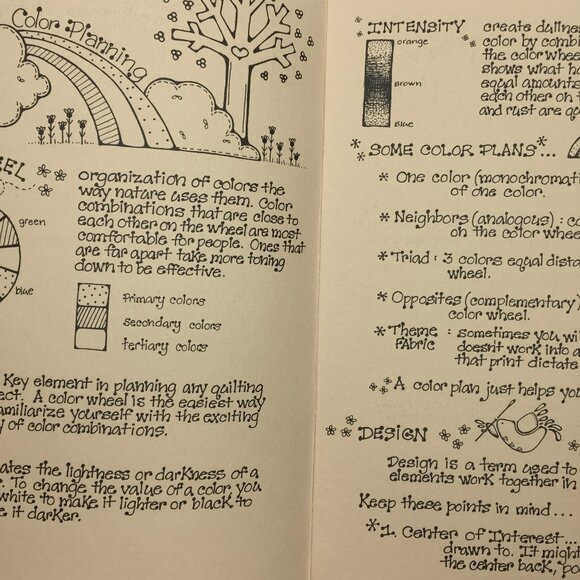 Color Planning
EEL
organization of colors the
way nature uses them. Color
combinations that are close to
each other on the wheel are most
comfortable for people. Ones that
are far apart take more toning
down to be effective.
green
blue
Primary colors
secondary colors
tertiary colors
Key element in planning any quilting
ect. A color wheel is the easiest way
amiliarize yourself with the exciting
y of color combinations.
ates the lightness or darkness of a
r. To change the value of a color you
white to make it lighter or black to
e it darker.
INTENSITY
create dullnes
color by combi
the color whee
shows what ha
equal amounts
each other on t
and rust are qu
orange
Brown
Blue
SOME COLOR PLANS...
* One color (monochromati
of one color.
* Neighbors (analogous) : co
on the color whee
* Triad : 3 colors equal dista
wheel.
* Opposites (complementary)
color wheel.
* Theme Fabric : sometimes you wi
doesnt work into a
that print dictate
A color plan just helps you
DESIGN
Design is a term used to
elements work together in
Keep these points in mind...
*1. Center of Interest...
drawn to. It might
the center back, po